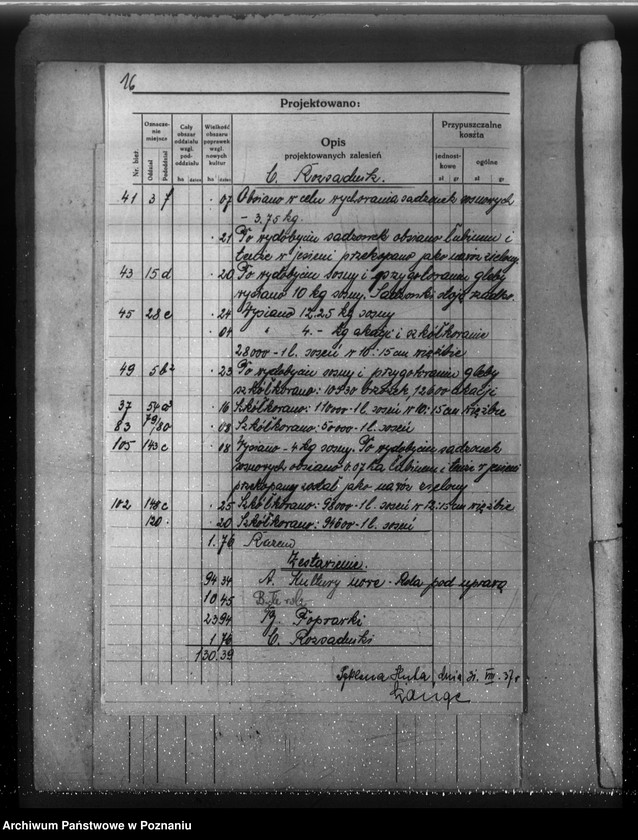 16
Projektowano:
Nr. bież.
Oznaczenie miejsca
Oddział
Pododdział
Cały obszar oddziału wzgl. pododdziału
ha
Wielkość obszaru poprawek wzgl. nowych kultur
ha
Opis
projektowanych zalesień
Przypuszczalne koszta
jednostkowe
ogólne
zł gr zł gr
C. Rozsadnik.
41 3 f . 07 Obsiano w celu wychowania sadzonek sosnowych
- 3.75 kg.
. 21 Po wydobyciu sadzonek obsiano łubinem i
tenże w jesieni przekopano jako nawóz zielony
43 15 d . 20 Po wydobyciu sosny i przygotowaniu gleby
wysiano 10 kg sosny. Sadzonki stoją rzadko.
45 28 c . 24 Wysiano 12.25 kg sosny
. 04 " 4.- kg akacji i szkółkowano
28000 - 1 l. sosen w 10:15 cm więźbie
49 5 b² . 23 Po wydobyciu sosny i przygotowaniu gleby
szkółkowano: 10930 brzózek, 12600 akacji
37 54 a³ . 16 Szkółkowano: 11000 - 1 l. sosen w 10:15 cm więźbie
83 79/80 . 08 Szkółkowano: 50000 - 1 l. sosen
105 143 c . 08 Wysiano - 4 kg sosny. Po wydobyciu sadzonek
sosnowych obsiano 0.07 ha łubinem i tenże w jesieni
przekopany został jako nawóz zielony
102 140 c . 25 Szkółkowano: 98000 - 1 l. sosen w 12:15 cm więźbie
120 . . 20 Szkółkowano: 94600 - 1 l. sosen
1.76 Razem
Zestawienie.
94 34 A. Kultury nowe - Rola pod uprawą
10 45
23 94 B. Poprawki
1.76 C. Rozsadniki
130.39
Huta, dnia 31. VIII. 37 r
Lange
Archiwum Państwowe w Poznaniu